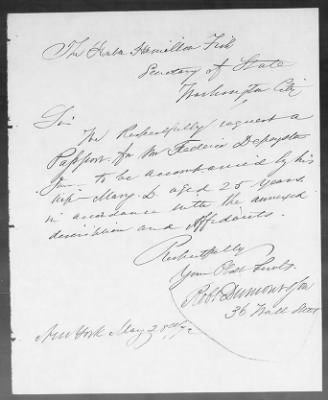 The Honble Hamilton Fish
Secretary of State
Washington City
Sir
We Respectfully request a
Passport for Mr Frederic Depeyster
Jun to be accompanied by his
wife Mary D aged 25 years
in accordance with the annexed
description and Affidavits.
Respectfully
Your Obdt Servts
Robt Dumont & Son
36 Wall Street
New York May 20